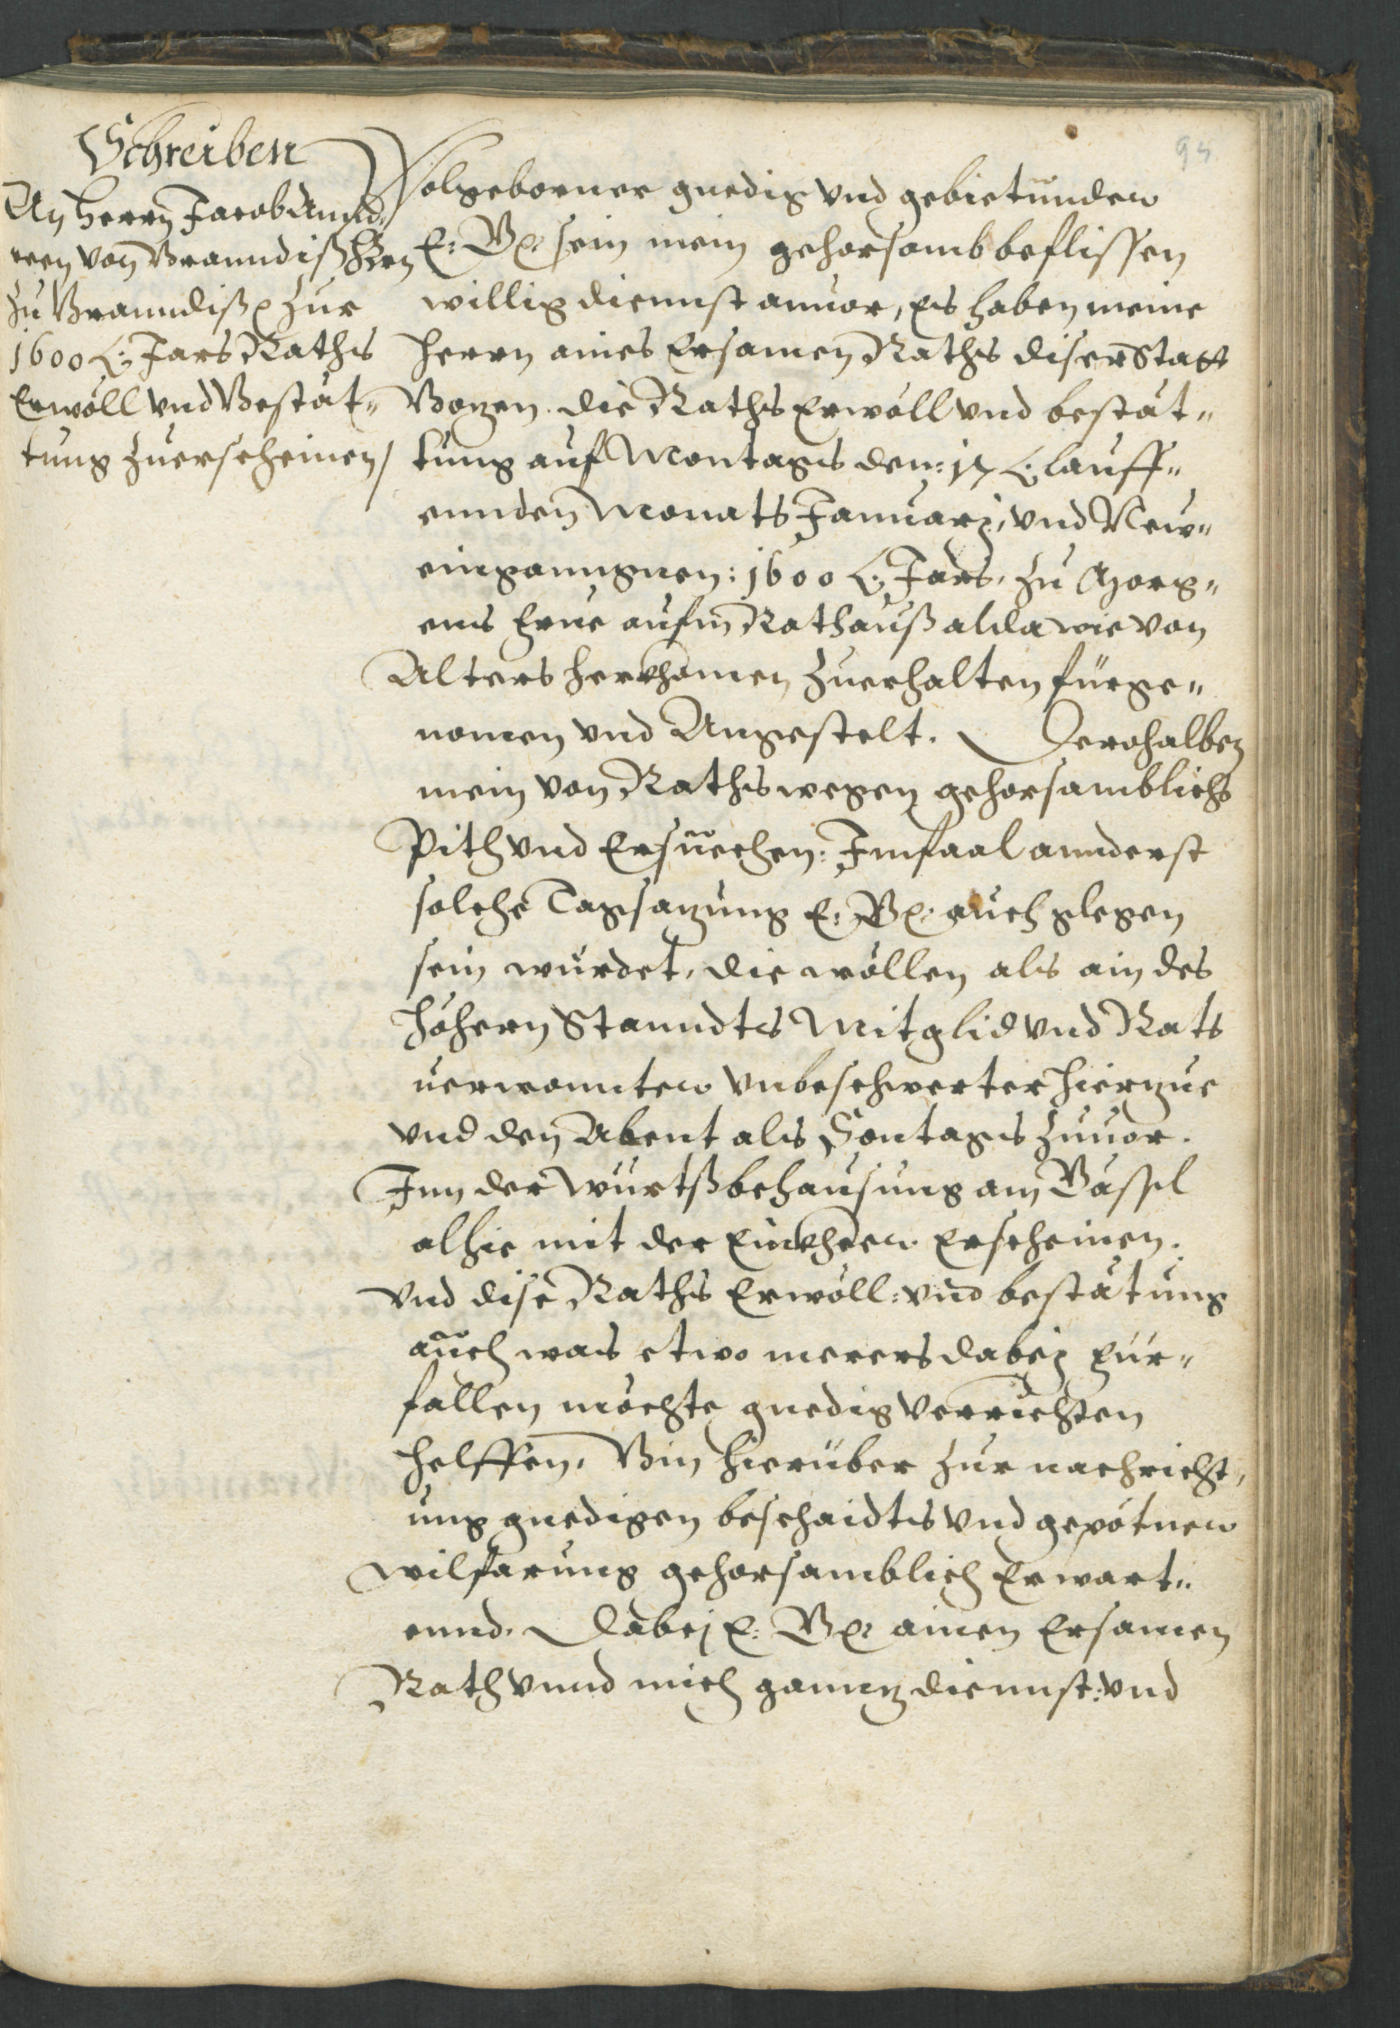 94
Schreiben
An Herrn Jacob Annd
reen von Branndiß Hern
zu Branndiß zur
1600 L: Jars Raths
Erwöll und Bestät„
tung zuerscheinen/
Wolgeborner gnedig vnd gebietunden
E: Gn: sein mein gehorsamb beflissen
willig diennst anuor, Es haben meine
Herrn aines Ersamen Raths diser Statt
Bozen die Raths Erwöll vnd bestät„
tung auf Montags den: 17 L: lauff„
ennden Monats Januarj, vnd New„
einganngnen: 1600 L: Jars, zu Morg„
ens Frue aufm Rathauß alda wie von
Alters herkhomen zuerhalten fürge„
nomen vnd Angestelt. Derohalben
mein von Raths wegen gehorsamblichs
Pith vnd Ersuechen: Imfaal annderst
solche Tagsazung E: Gn: auch glegen
sein würdet, die wöllen als ain des
höhern Standts Mitglid vnd Rats
uerwonnten vnbeschwerter hierzue
vnd den Abent als Sontags zuuor.
Inn der Würtßbehausung am Gässl
alhie mit der Einkheer Erscheinen.
Vnd dise Raths Erwöll: vnd bestätung
auch was etwo merers dabej für„
fallen möchte gnedig verrichten
helffen, Bin hierüber zur nachricht„
ung gnedigen beschaidts vnd gepötnen
wilfarung gehorsamblich Erwart„
ennd. Dabej E: Gn: ainen Ersamen
Rath vnnd mich gannz diennst: vnd